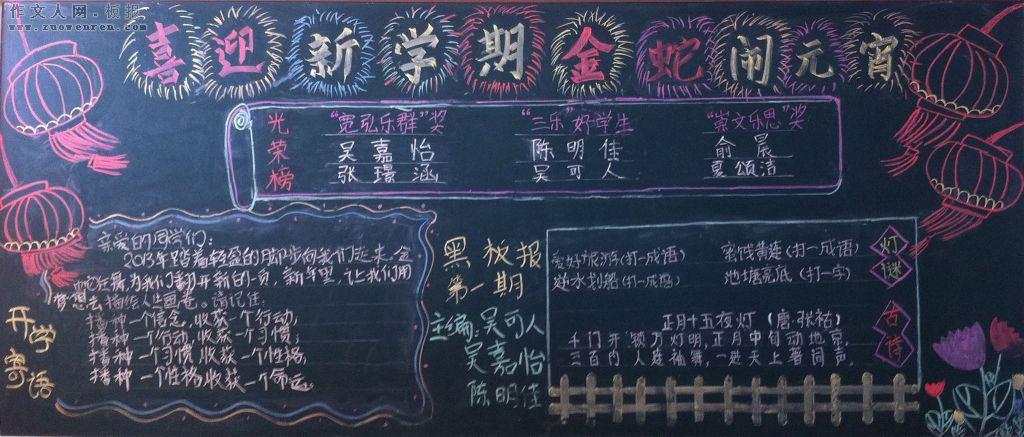 作文人网·板报
www.zuowenren.com
喜迎新学期金蛇闹元宵
光荣榜
"宽弘乐群"奖 "三乐"好学生 "崇文乐思"奖
吴嘉怡 陈明佳 俞晨
张璟涵 吴可人 夏颂洁
开学寄语
亲爱的同学们:
2013年踏着轻盈的脚步向我们走来,金
蛇狂舞,为我们翻开新的一页,新年里,让我们用
梦想去描绘人生画卷。请记住:
播种一个信念,收获一个行动;
播种一个行动,收获一个习惯;
播种一个习惯,收获一个性格;
播种一个性格,收获一个命运。
黑板报
第一期
主编:吴可人
吴嘉怡
陈明佳
灯谜
(打一成语) 蜜饯黄连(打一成语)
逆水划船(打一成语) 池塘亮底(打一字)
古诗
正月十五夜灯(唐·张祜)
千门开锁万灯明,正月中旬动地京.
三百内人连袖舞,一进天上著词声.